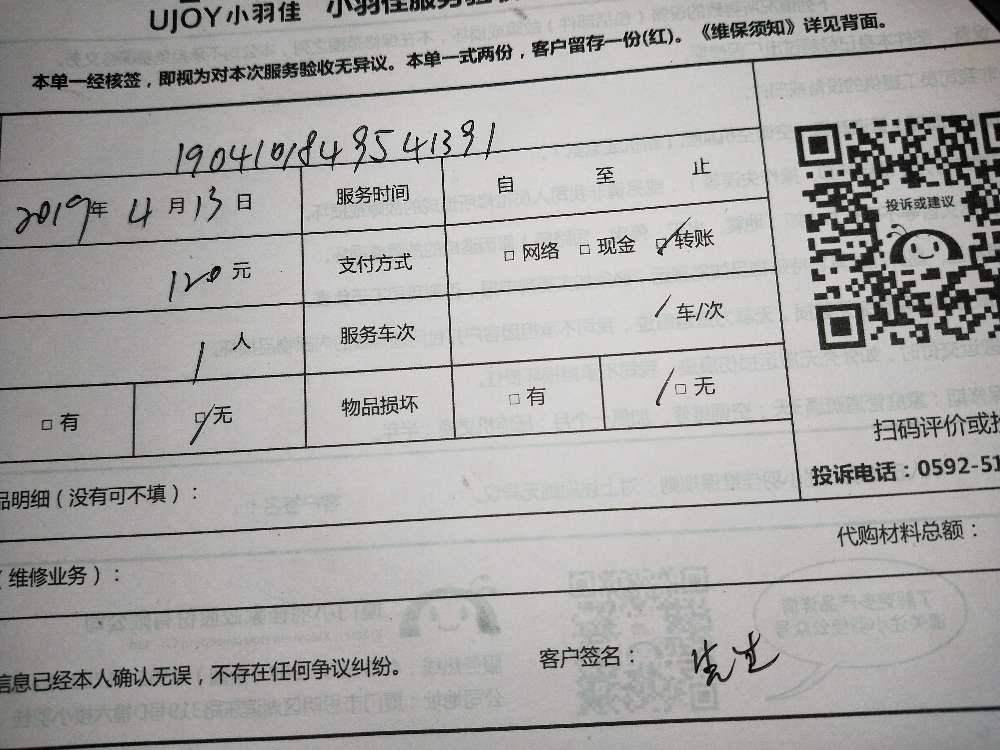 UJOY小羽佳 小羽佳服务验
本单一经核签，即视为对本次服务验收无异议。本单一式两份，客户留存一份(红)。《维保须知》详见背面。
2019年 4月13日 服务时间 自 至 止
投诉或建议
120元 支付方式 □网络 □现金 □转账
1人 服务车次 /车/次
□有 □无 物品损坏 □有 □无
扫码评价或
投诉电话：0592-51
品明细（没有可不填）：
代购材料总额：
（维修业务）：
信息已经本人确认无误，不存在任何争议纠纷。 客户签名：